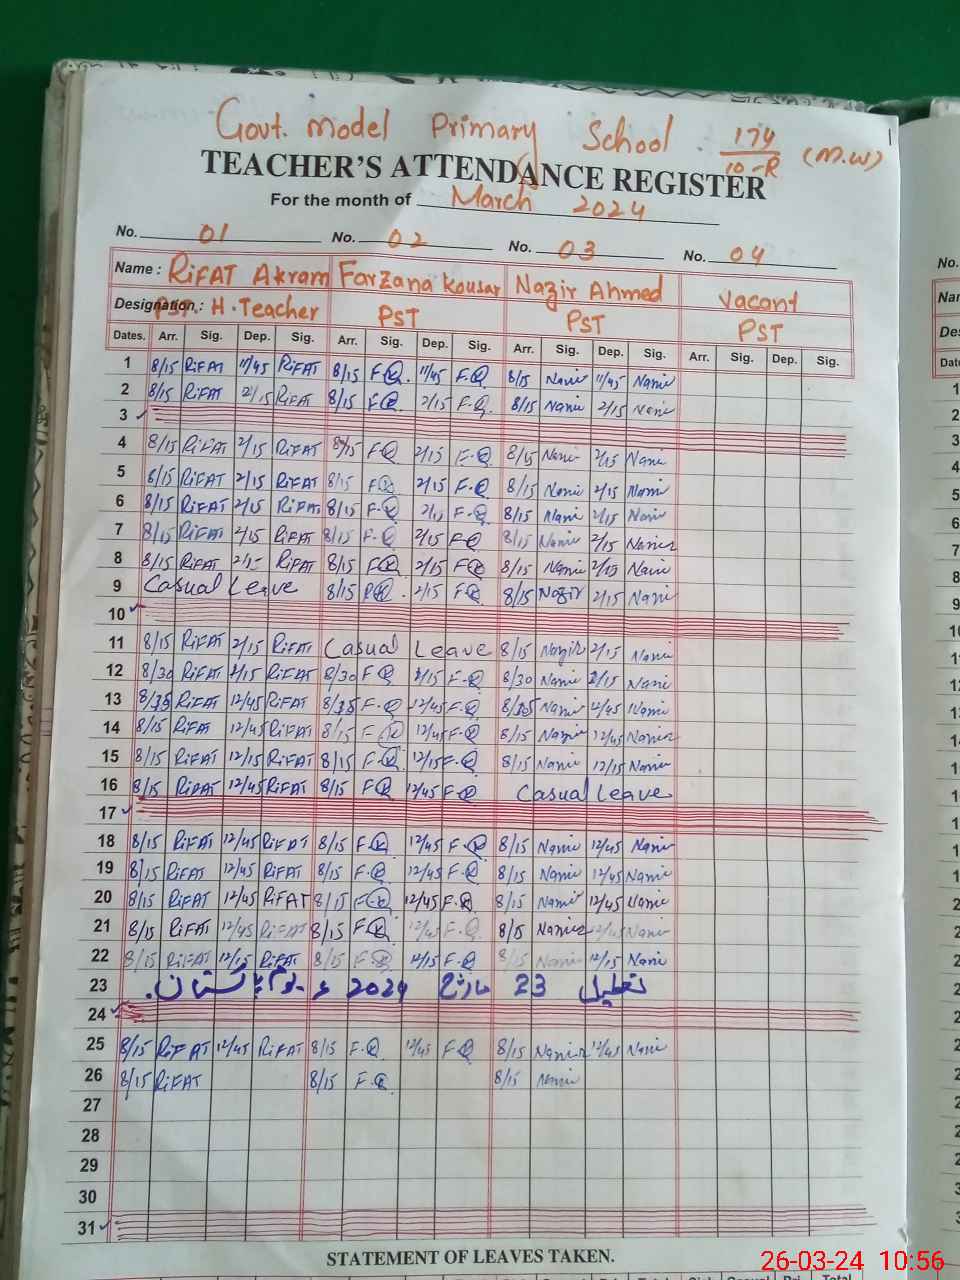 Govt. Model Primary School 174/10-R (M.W)
TEACHER'S ATTENDANCE REGISTER
For the month of March 2024
No. 01 No. 02 No. 03 No. 04
Name : RiFAT Akram Farzana Kousar Nazir Ahmed Vacant
Designation : PST. H.Teacher PST PST PST
Dates. Arr. Sig. Dep. Sig. Arr. Sig. Dep. Sig. Arr. Sig. Dep. Sig. Arr. Sig. Dep. Sig.
1 8/15 RiFAT 11/45 RiFAT 8/15 F.Q. 11/45 F.Q 8/15 Nazir 11/45 Nazir
2 8/15 RiFAT 2/15 RiFAT 8/15 F.Q 2/15 F.Q 8/15 Nazir 2/15 Nazir
3
4 8/15 RiFAT 2/15 RiFAT 8/15 F.Q 2/15 F.Q 8/15 Nazir 2/15 Nazir
5 8/15 RiFAT 2/15 RiFAT 8/15 F.Q 2/15 F.Q 8/15 Nazir 2/15 Nazir
6 8/15 RiFAT 2/15 RiFAT 8/15 F.Q 2/15 F.Q 8/15 Nazir 2/15 Nazir
7 8/15 RiFAT 2/15 RiFAT 8/15 F.Q 2/15 F.Q 8/15 Nazir 2/15 Nazir
8 8/15 RiFAT 2/15 RiFAT 8/15 F.Q 2/15 F.Q 8/15 Nazir 2/15 Nazir
9 Casual Leave 8/15 F.Q 2/15 F.Q 8/15 Nazir 2/15 Nazir
10
11 8/15 RiFAT 2/15 RiFAT Casual Leave 8/15 Nazir 2/15 Nazir
12 8/30 RiFAT 2/15 RiFAT 8/30 F.Q 2/15 F.Q 8/30 Nazir 2/15 Nazir
13 RiFAT 12/45 RiFAT F.Q 12/45 F.Q Nazir 12/45 Nazir
14 8/15 RiFAT 12/45 RiFAT 8/15 F.Q 12/45 F.Q 8/15 Nazir 12/45 Nazir
15 8/15 RiFAT 12/15 RiFAT 8/15 F.Q 12/15 F.Q 8/15 Nazir 12/15 Nazir
16 8/15 RiFAT 12/45 RiFAT 8/15 F.Q 12/45 F.Q Casual Leave
17
18 8/15 RiFAT 12/45 RiFAT 8/15 F.Q 12/45 F.Q 8/15 Nazir 12/45 Nazir
19 8/15 RiFAT 12/45 RiFAT 8/15 F.Q 12/45 F.Q 8/15 Nazir 12/45 Nazir
20 8/15 RiFAT 12/45 RiFAT 8/15 F.Q 12/45 F.Q 8/15 Nazir 12/45 Nazir
21 8/15 RiFAT 12/45 RiFAT 8/15 F.Q 12/45 F.Q 8/15 Nazir 12/45 Nazir
22 8/15 RiFAT 12/15 RiFAT 8/15 F.Q 12/15 F.Q 8/15 Nazir 12/15 Nazir
23 تعطیل 23 مارچ 2024ء یوم پاکستان۔
24
25 8/15 RiFAT 12/45 RiFAT 8/15 F.Q 12/45 F.Q 8/15 Nazir 12/45 Nazir
26 8/15 RiFAT 8/15 F.Q 8/15 Nazir
27
28
29
30
31
STATEMENT OF LEAVES TAKEN.
26-03-24 10:56